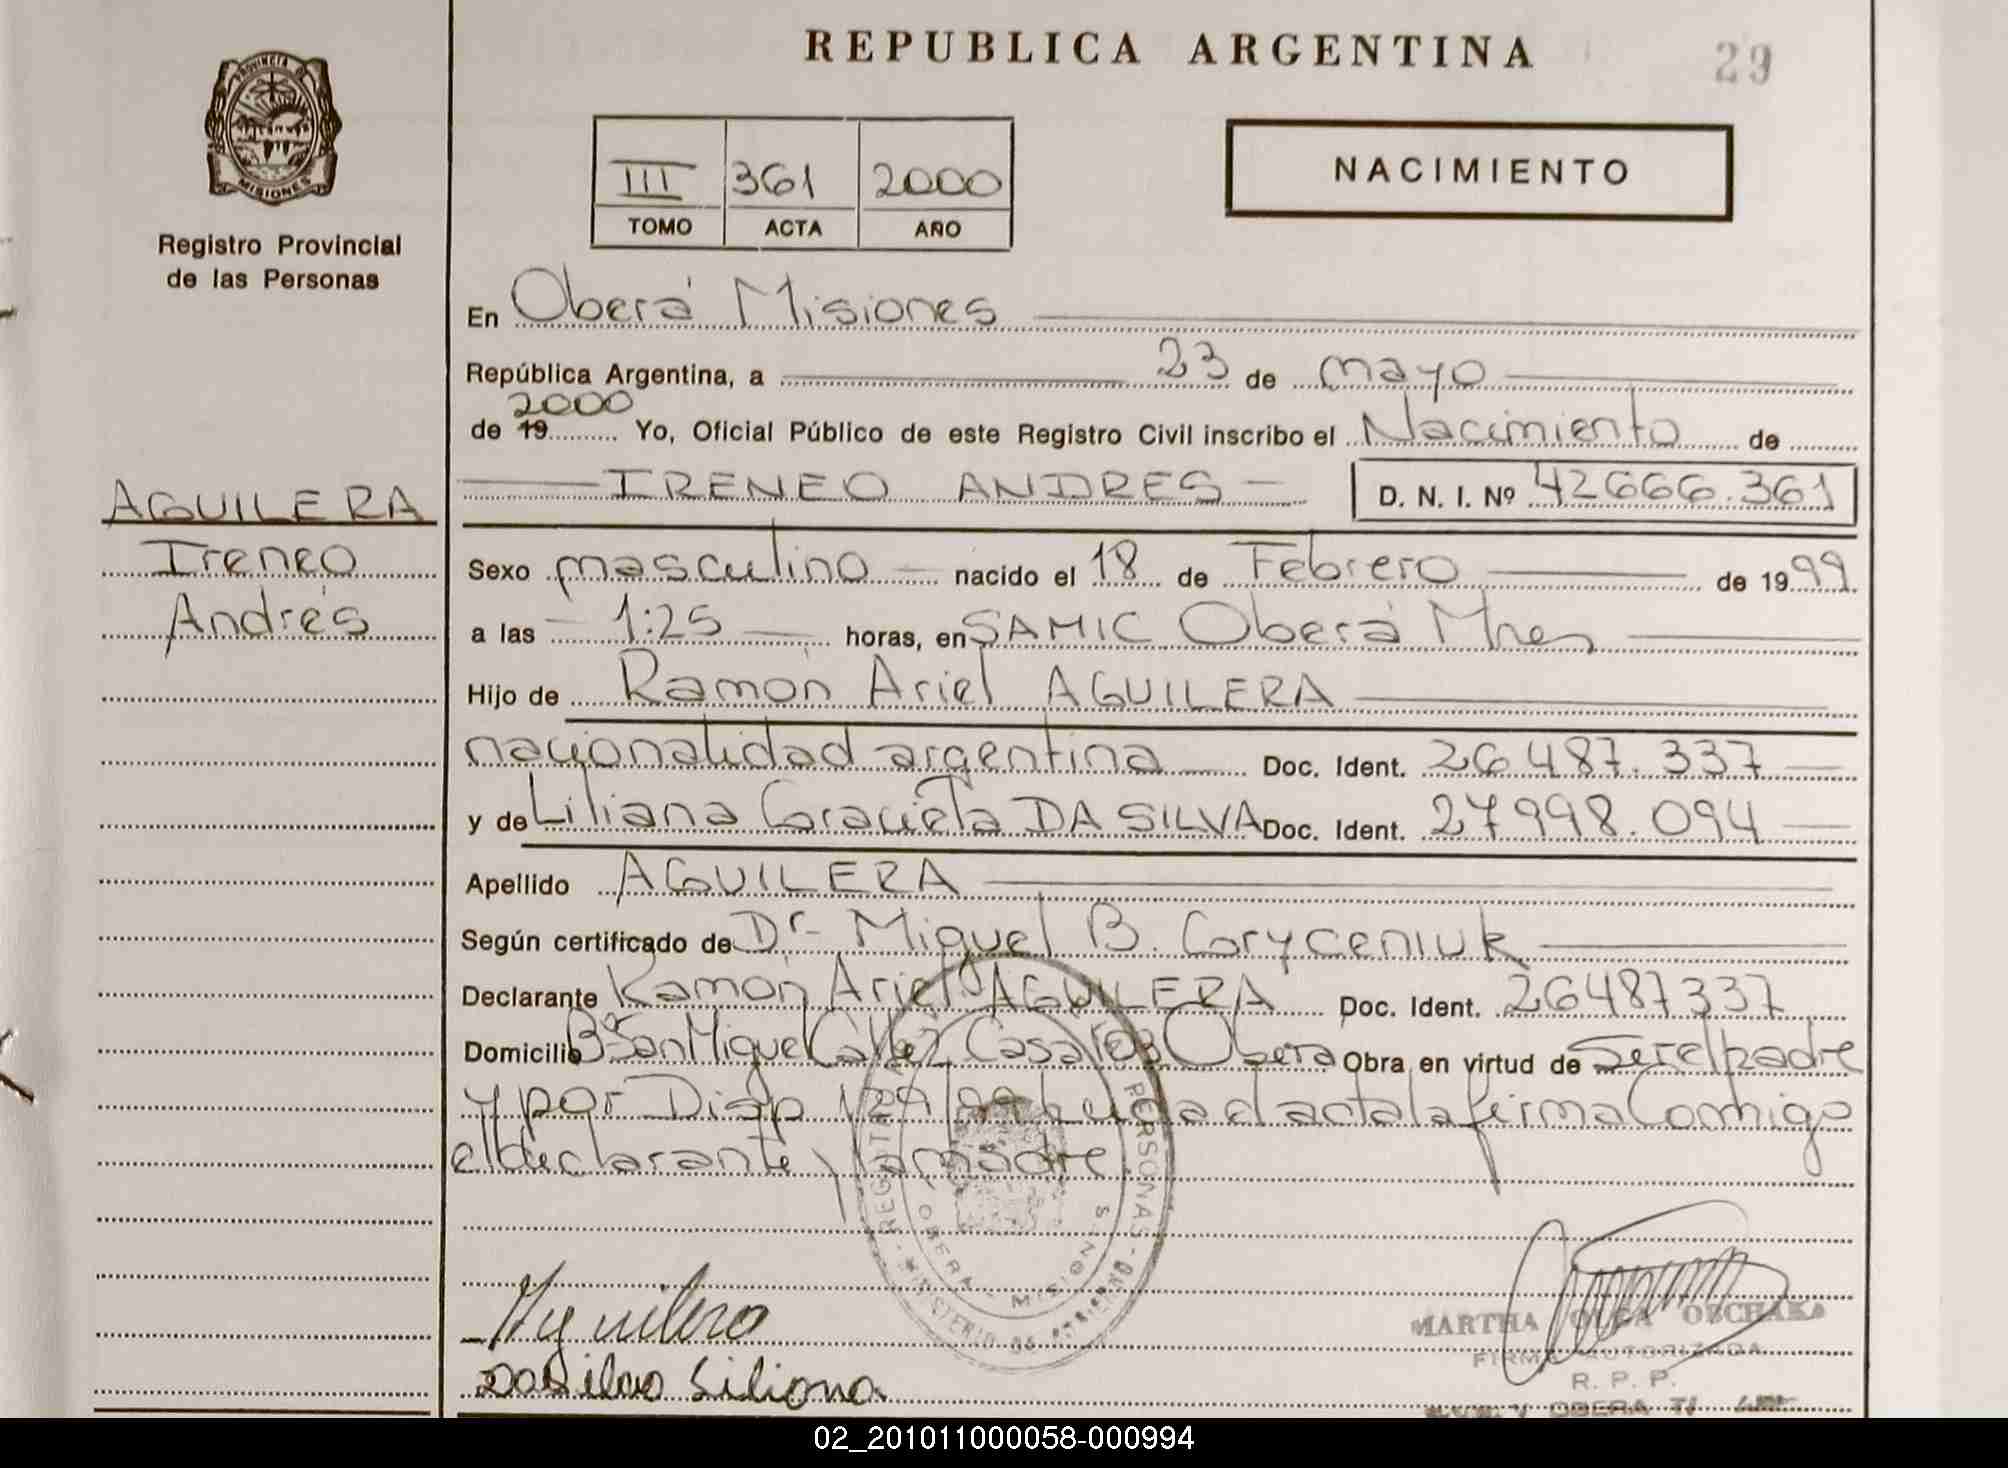 REPUBLICA ARGENTINA
29
PROVINCIA DE MISIONES
Registro Provincial
de las Personas
III 361 2000
TOMO ACTA AÑO
NACIMIENTO
En Oberá Misiones
República Argentina, a 23 de mayo
2000
de 19 Yo, Oficial Público de este Registro Civil inscribo el Nacimiento de
IRENEO ANDRES D. N. I. Nº 42666.361
AGUILERA
Ireneo
Andrés
Sexo masculino nacido el 18 de Febrero de 1999
a las 1:25 horas, en SAMIC Oberá Mnes
Hijo de Ramón Ariel AGUILERA
nacionalidad argentina Doc. Ident. 26487.337
y de Liliana Graciela DA SILVA Doc. Ident. 27998.094
Apellido AGUILERA
Según certificado de Dr Miguel B. Goryceniuk
Declarante Ramón Ariel AGUILERA Doc. Ident. 26487337
Domicilio Bº San Miguel Casa Oberá Obra en virtud de Ser el padre
y por Disp 129 el acta la firma Conmigo
el declarante y la madre
REGISTRO PERSONAS
OBERA - MISIONES
MINISTERIO DE GOBIERNO
Aguilera
DaSilva Liliana
MARTHA OLGA OBCHAKA
FIRMA AUTORIZADA
R. P. P.
OBERA
02_201011000058-000994